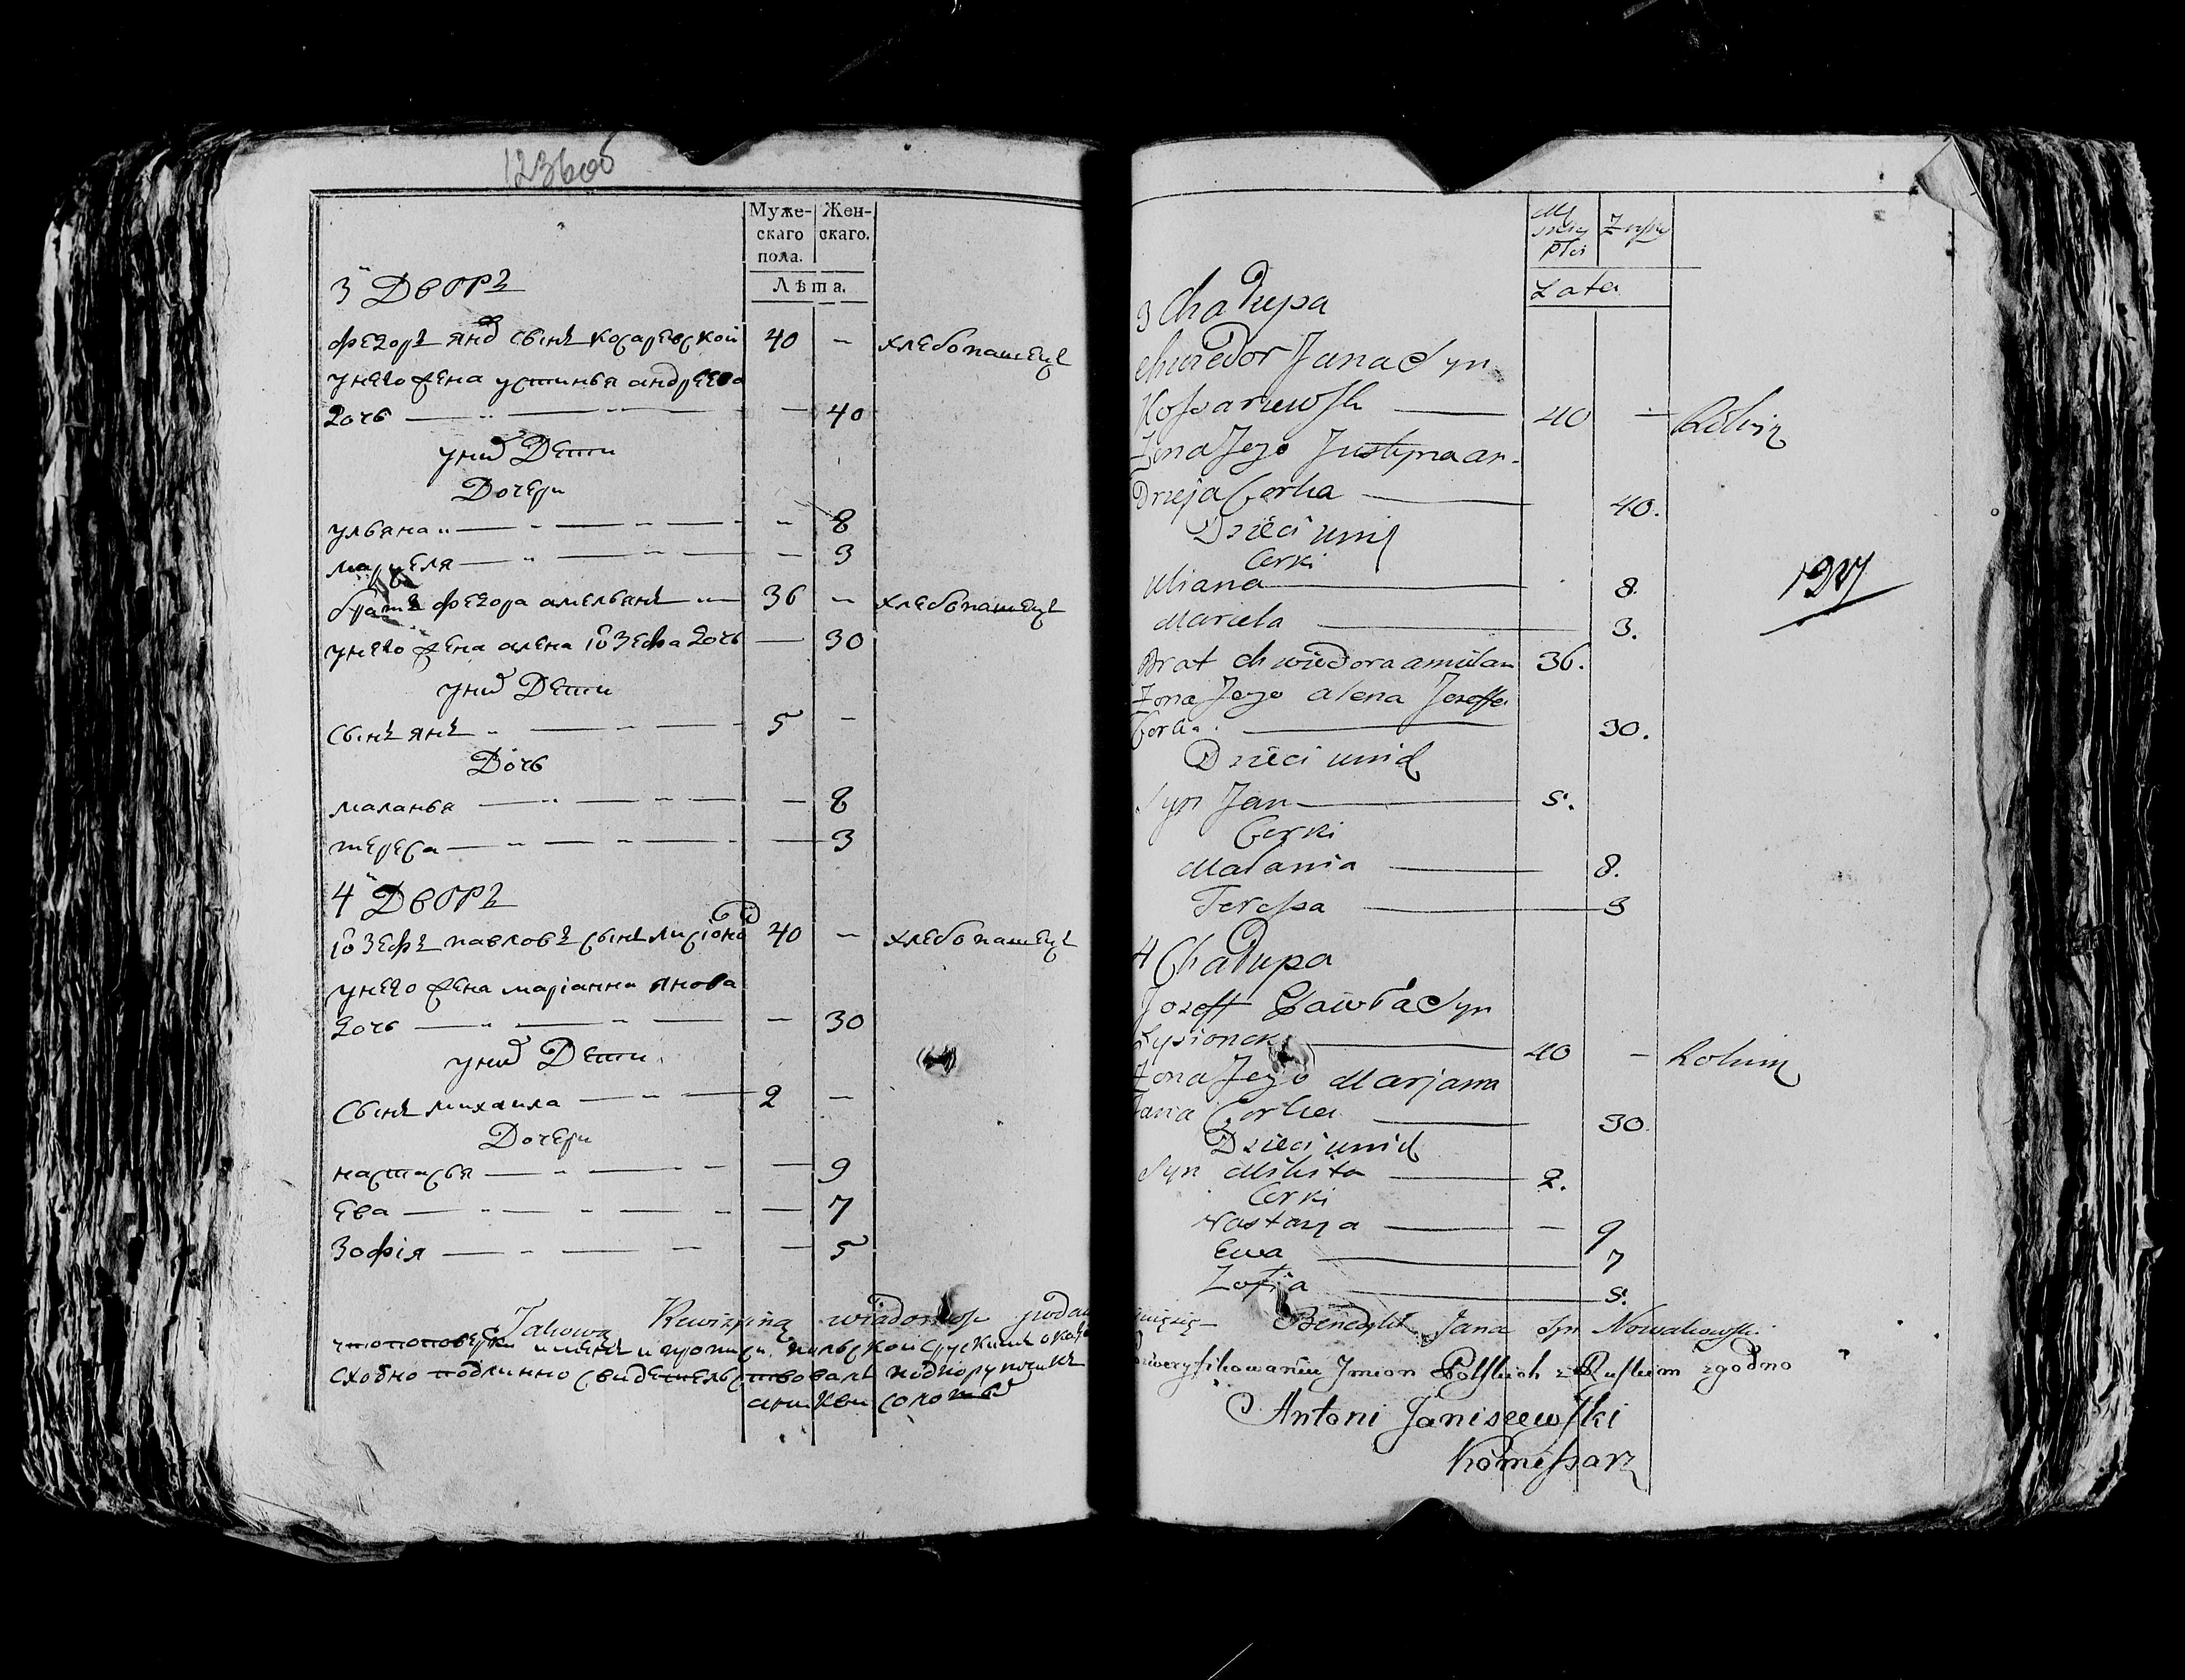 123 об
Муже-
скаго
пола.
Жен-
скаго.
Лѣта.
3 Дворъ
Федоръ Янов сынъ Косаревской 40 - хлебопашецъ
у него жена Устинья Андреева
дочь - 40
у них Дети
Дочери
Ульяна - 8
Марцеля - 3
братъ Федора Амельянъ 36 - хлебопашецъ
у него жена Алена Іозефа дочь - 30
у них Дети
Сынъ Янъ 5 -
Дочь
Маланья - 8
Тереса - 3
4 Дворъ
Іозефъ Павловъ сынъ Лисіонок 40 - хлебопашецъ
у него жена Маріанна Янова
дочь - 30
у них Дети
Сынъ Михаила 2 -
Дочери
Настасья - 9
Ева - 7
Зофія - 5
Takową Rewizyiną wiadomość podał
что по поверки имянъ и прописи польской с руским оказа
сходно подлинно свидетельствовалъ подпоручикъ
Męs
Płci
Lata
3 Chałupa
Chwedor Jana Syn
Kossarzewski 40 - Rolnik
Żona Jego Justyna An-
drzeja Corka 40.
Dzieci unich
Corki
Uliana 8.
Marcela 3.
1927
Brat Chwiedora Amilan 36.
Żona Jego Alena Jozeffa
Corka 30.
Dzieci unich
Syn Jan 5.
Corki
Malania 8.
Teressa 3
4 Chałupa
Jozeff Pawła Syn
Łysionek 40 - Rolnik
Żona Jego Marjana
Jana Corka 30.
Dzieci unich
Syn Mikita 2.
Corki
Nastazya - 9
Ewa 7
Zofia 5.
Benedykt Jana Syn Nowakowski
zweryfikowaniu Jmion Polskich z Ruskiem zgodno
Antoni Janiszewski
Komissarz